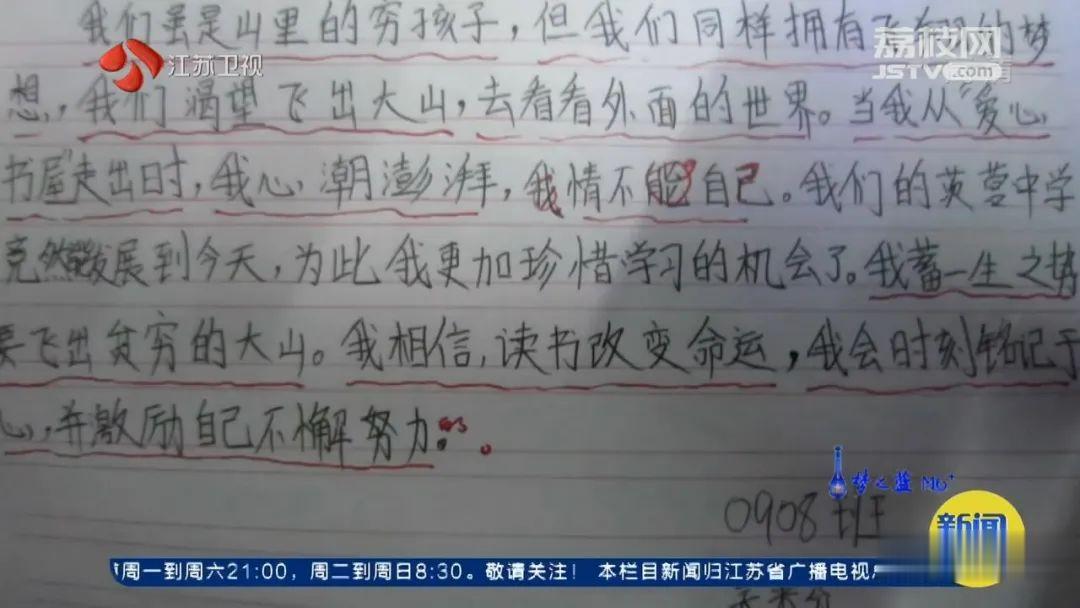 我们虽是山里的穷孩子，但我们同样拥有飞翔的梦
江苏卫视
荔枝网
JSTV.com
想，我们渴望飞出大山，去看看外面的世界。当我从“爱心
书屋”走出时，我心潮澎湃，我情不能自己。我们的英营中学
竟然能发展到今天，为此我更加珍惜学习的机会了。我蓄一生之势
要飞出贫穷的大山。我相信，读书改变命运，我会时刻铭记于
心，并激励自己不懈努力。
梦之蓝 M6+
0908班
新闻
周一到周六21:00，周二到周日8:30。敬请关注！ 本栏目新闻归江苏省广播电视